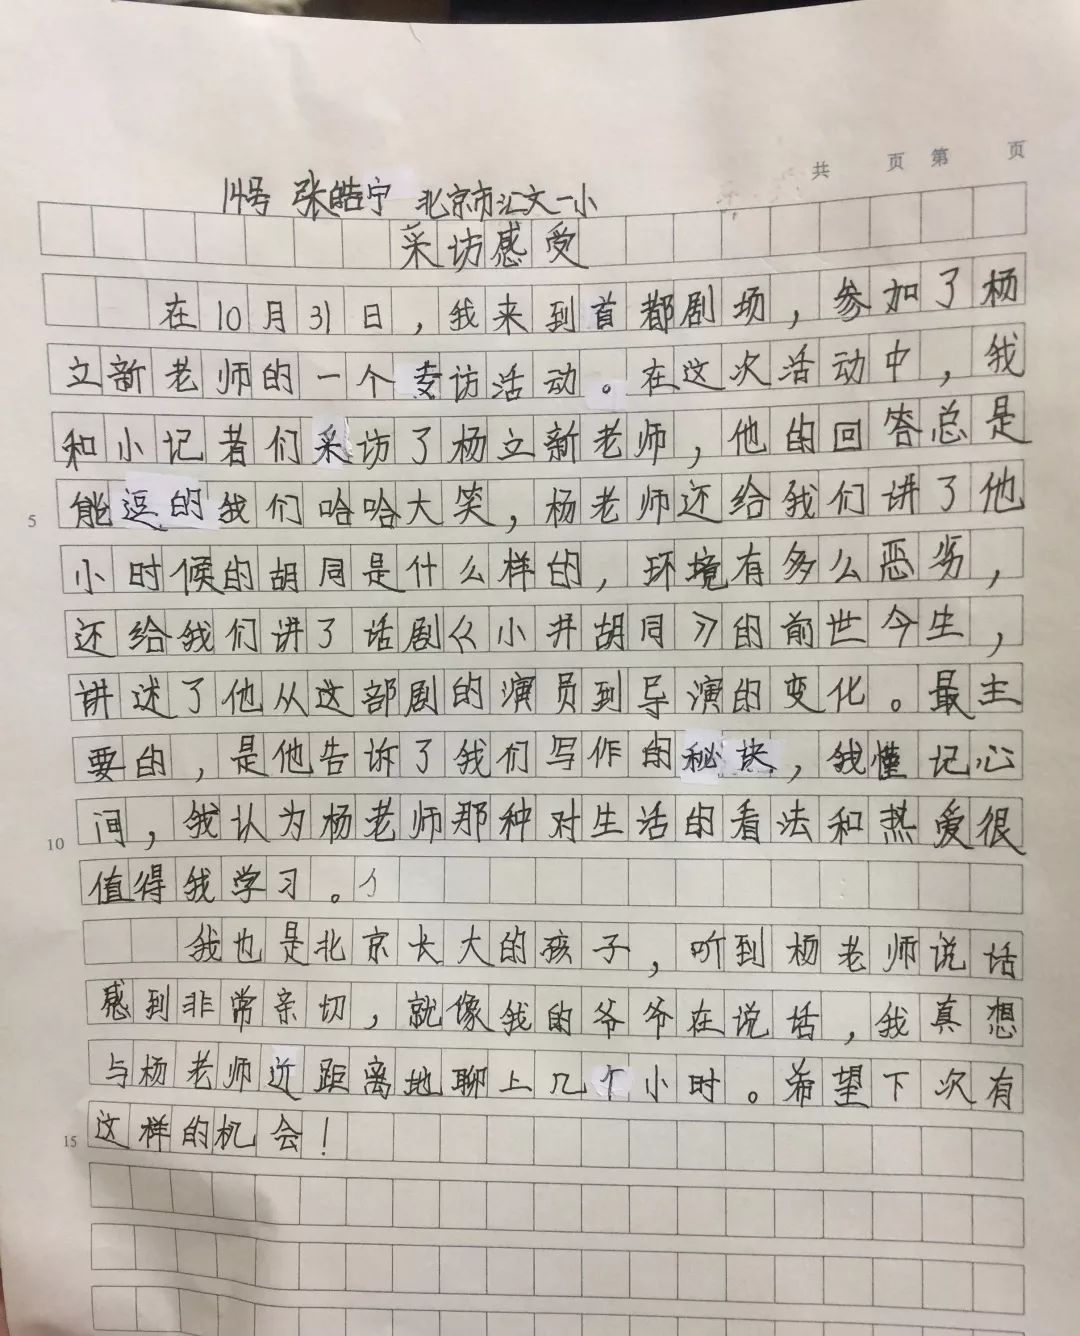 共 页 第 页
14号 张皓宁 北京市汇文一小
采访感受
在10月31日，我来到首都剧场，参加了杨
立新老师的一个专访活动。在这次活动中，我
和小记者们采访了杨立新老师，他的回答总是
能逗的我们哈哈大笑，杨老师还给我们讲了他
5
小时候的胡同是什么样的，环境有多么恶劣，
还给我们讲了话剧《小井胡同》的前世今生，
讲述了他从这部剧的演员到导演的变化。最主
要的，是他告诉了我们写作的秘诀，我懂记心
间，我认为杨老师那种对生活的看法和热爱很
10
值得我学习。
我也是北京长大的孩子，听到杨老师说话
感到非常亲切，就像我的爷爷在说话，我真想
与杨老师近距离地聊上几个小时。希望下次有
这样的机会！
15